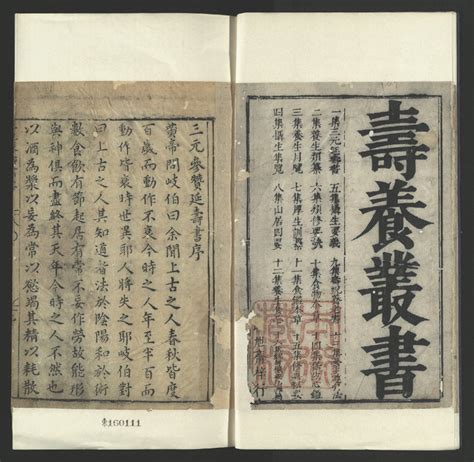 壽養叢書
一集三元延壽書 五集攝生要義 九集
二集養生類纂 六集類修要訣 十集食物本草 十四集
三集養生月覽 七集厚生訓纂 十一集食鑑本草 十五集
四集攝生集覽 八集山居四要 十二集養生食忌
梓行
三元參贊延壽書序
黃帝問岐伯曰余聞上古之人春秋皆度
百歲而動作不衰今時之人年至半百而
動作皆衰時世異耶人將失之耶岐伯對
曰上古之人其知道者法於陰陽和於術
數食飲有節起居有常不妄作勞故能形
與神俱而盡終其天年今時之人不然也
以酒為漿以妄為常以慾竭其精以耗散
160111